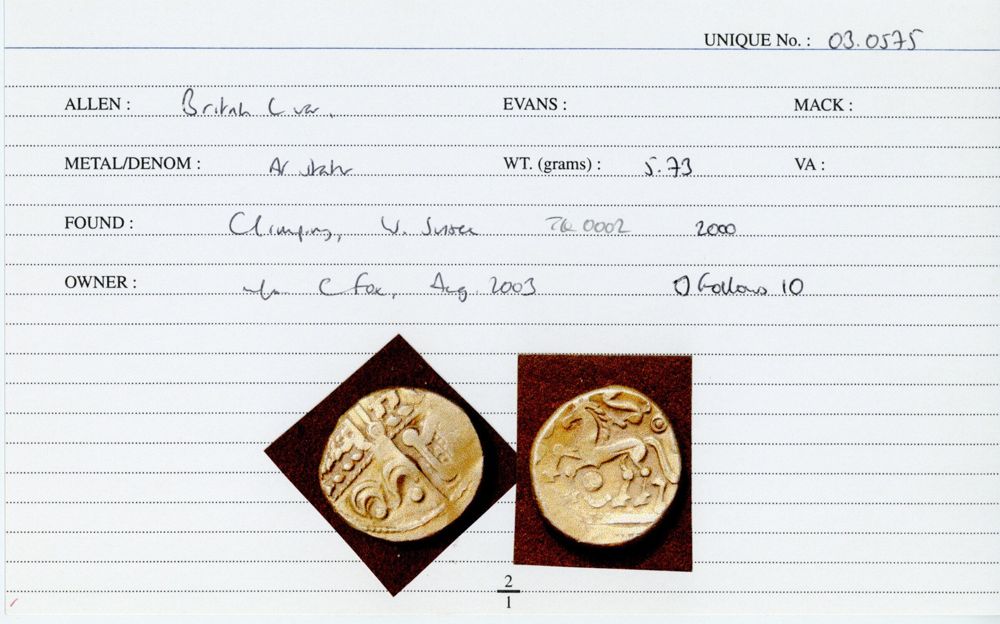 UNIQUE No. : 03.0575
ALLEN : British L var. EVANS : MACK :
METAL/DENOM : AV stater WT. (grams) : 5.73 VA :
FOUND : Climping, W. Sussex TQ 0002 2000
OWNER : C Fox, Aug 2003 follows 10
2
1